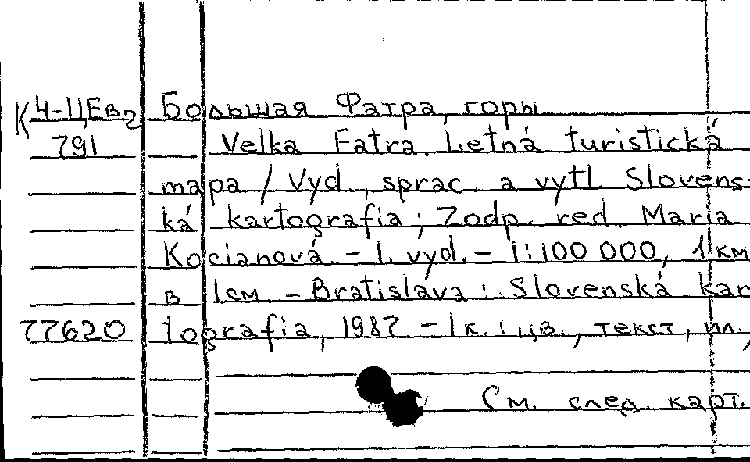 К 4-ЦЕв2 Большая Фатра, горы
791 Velka Fatra. Letná turistická
mapa / Vyd., sprac. a vytl. Slovens-
ká kartografia; Zodp. red. Maria
Kocianová. - 1. vyd. - 1:100 000, 1 км
в 1 см. - Bratislava: Slovenská kar
77620 tografia, 1987. - 1 к.: цв., текст, ил.,
См. след. карт.